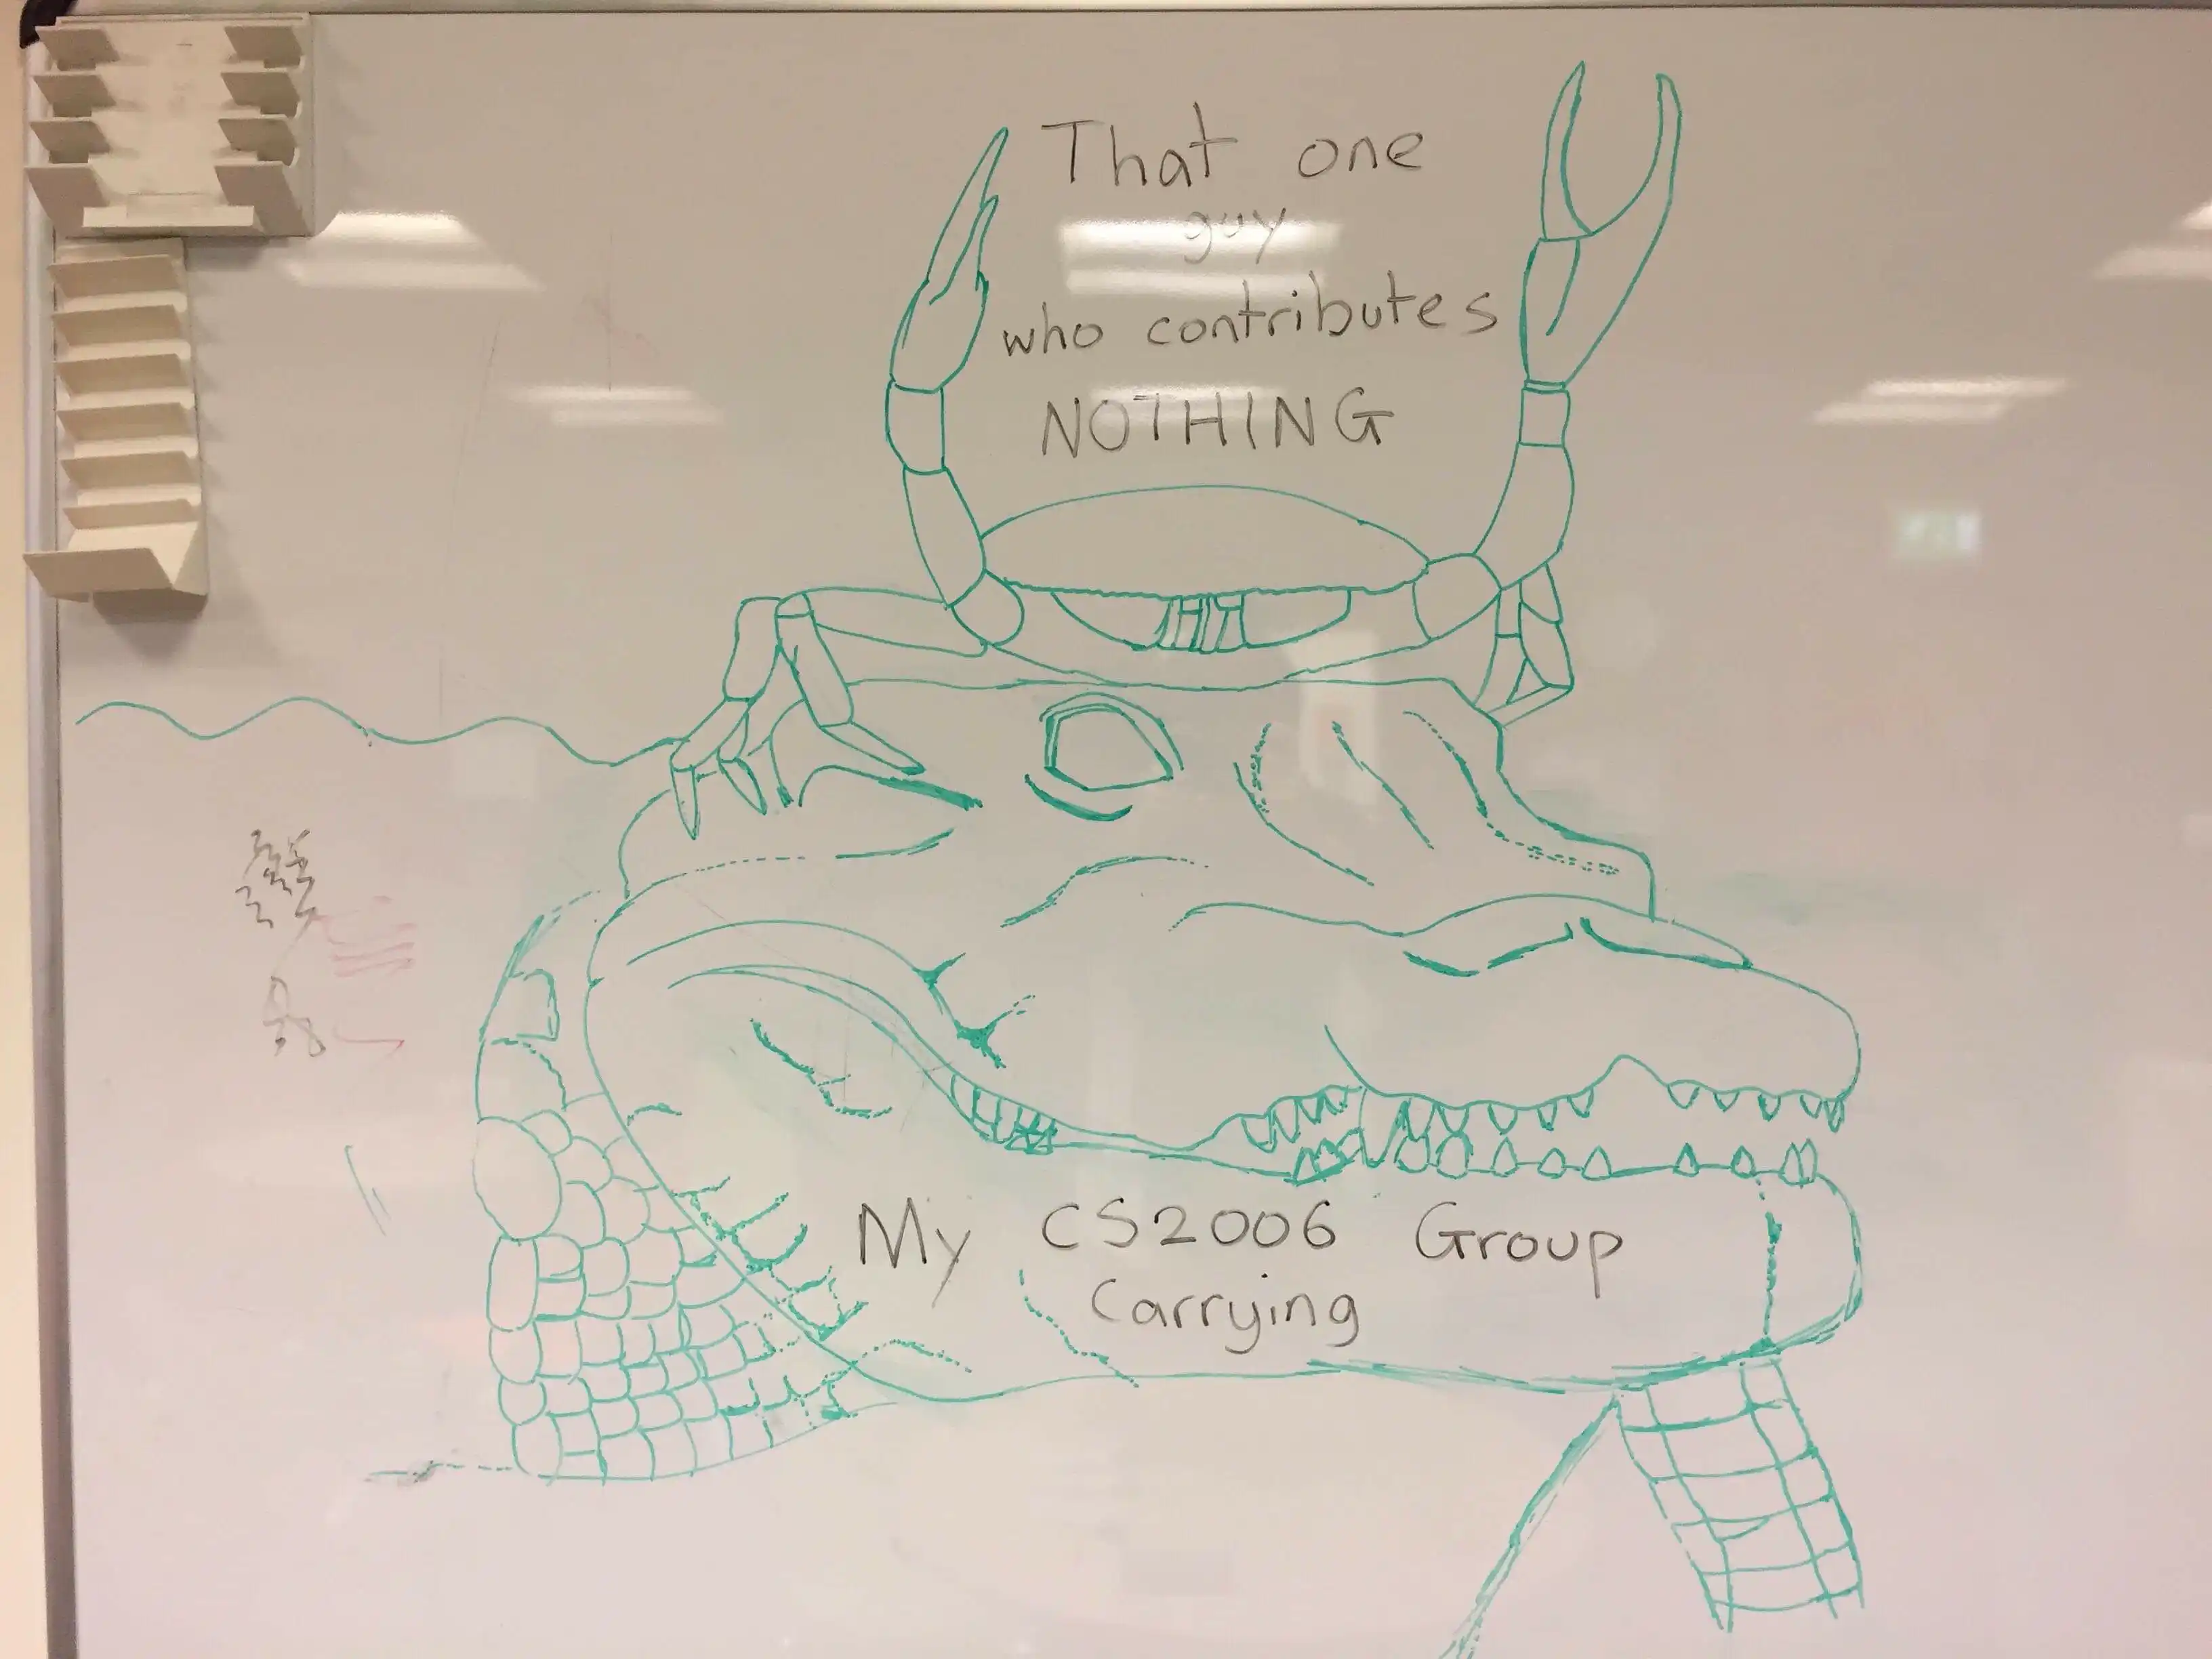 That one
guy
who contributes
NOTHING
My CS2006 Group
Carrying